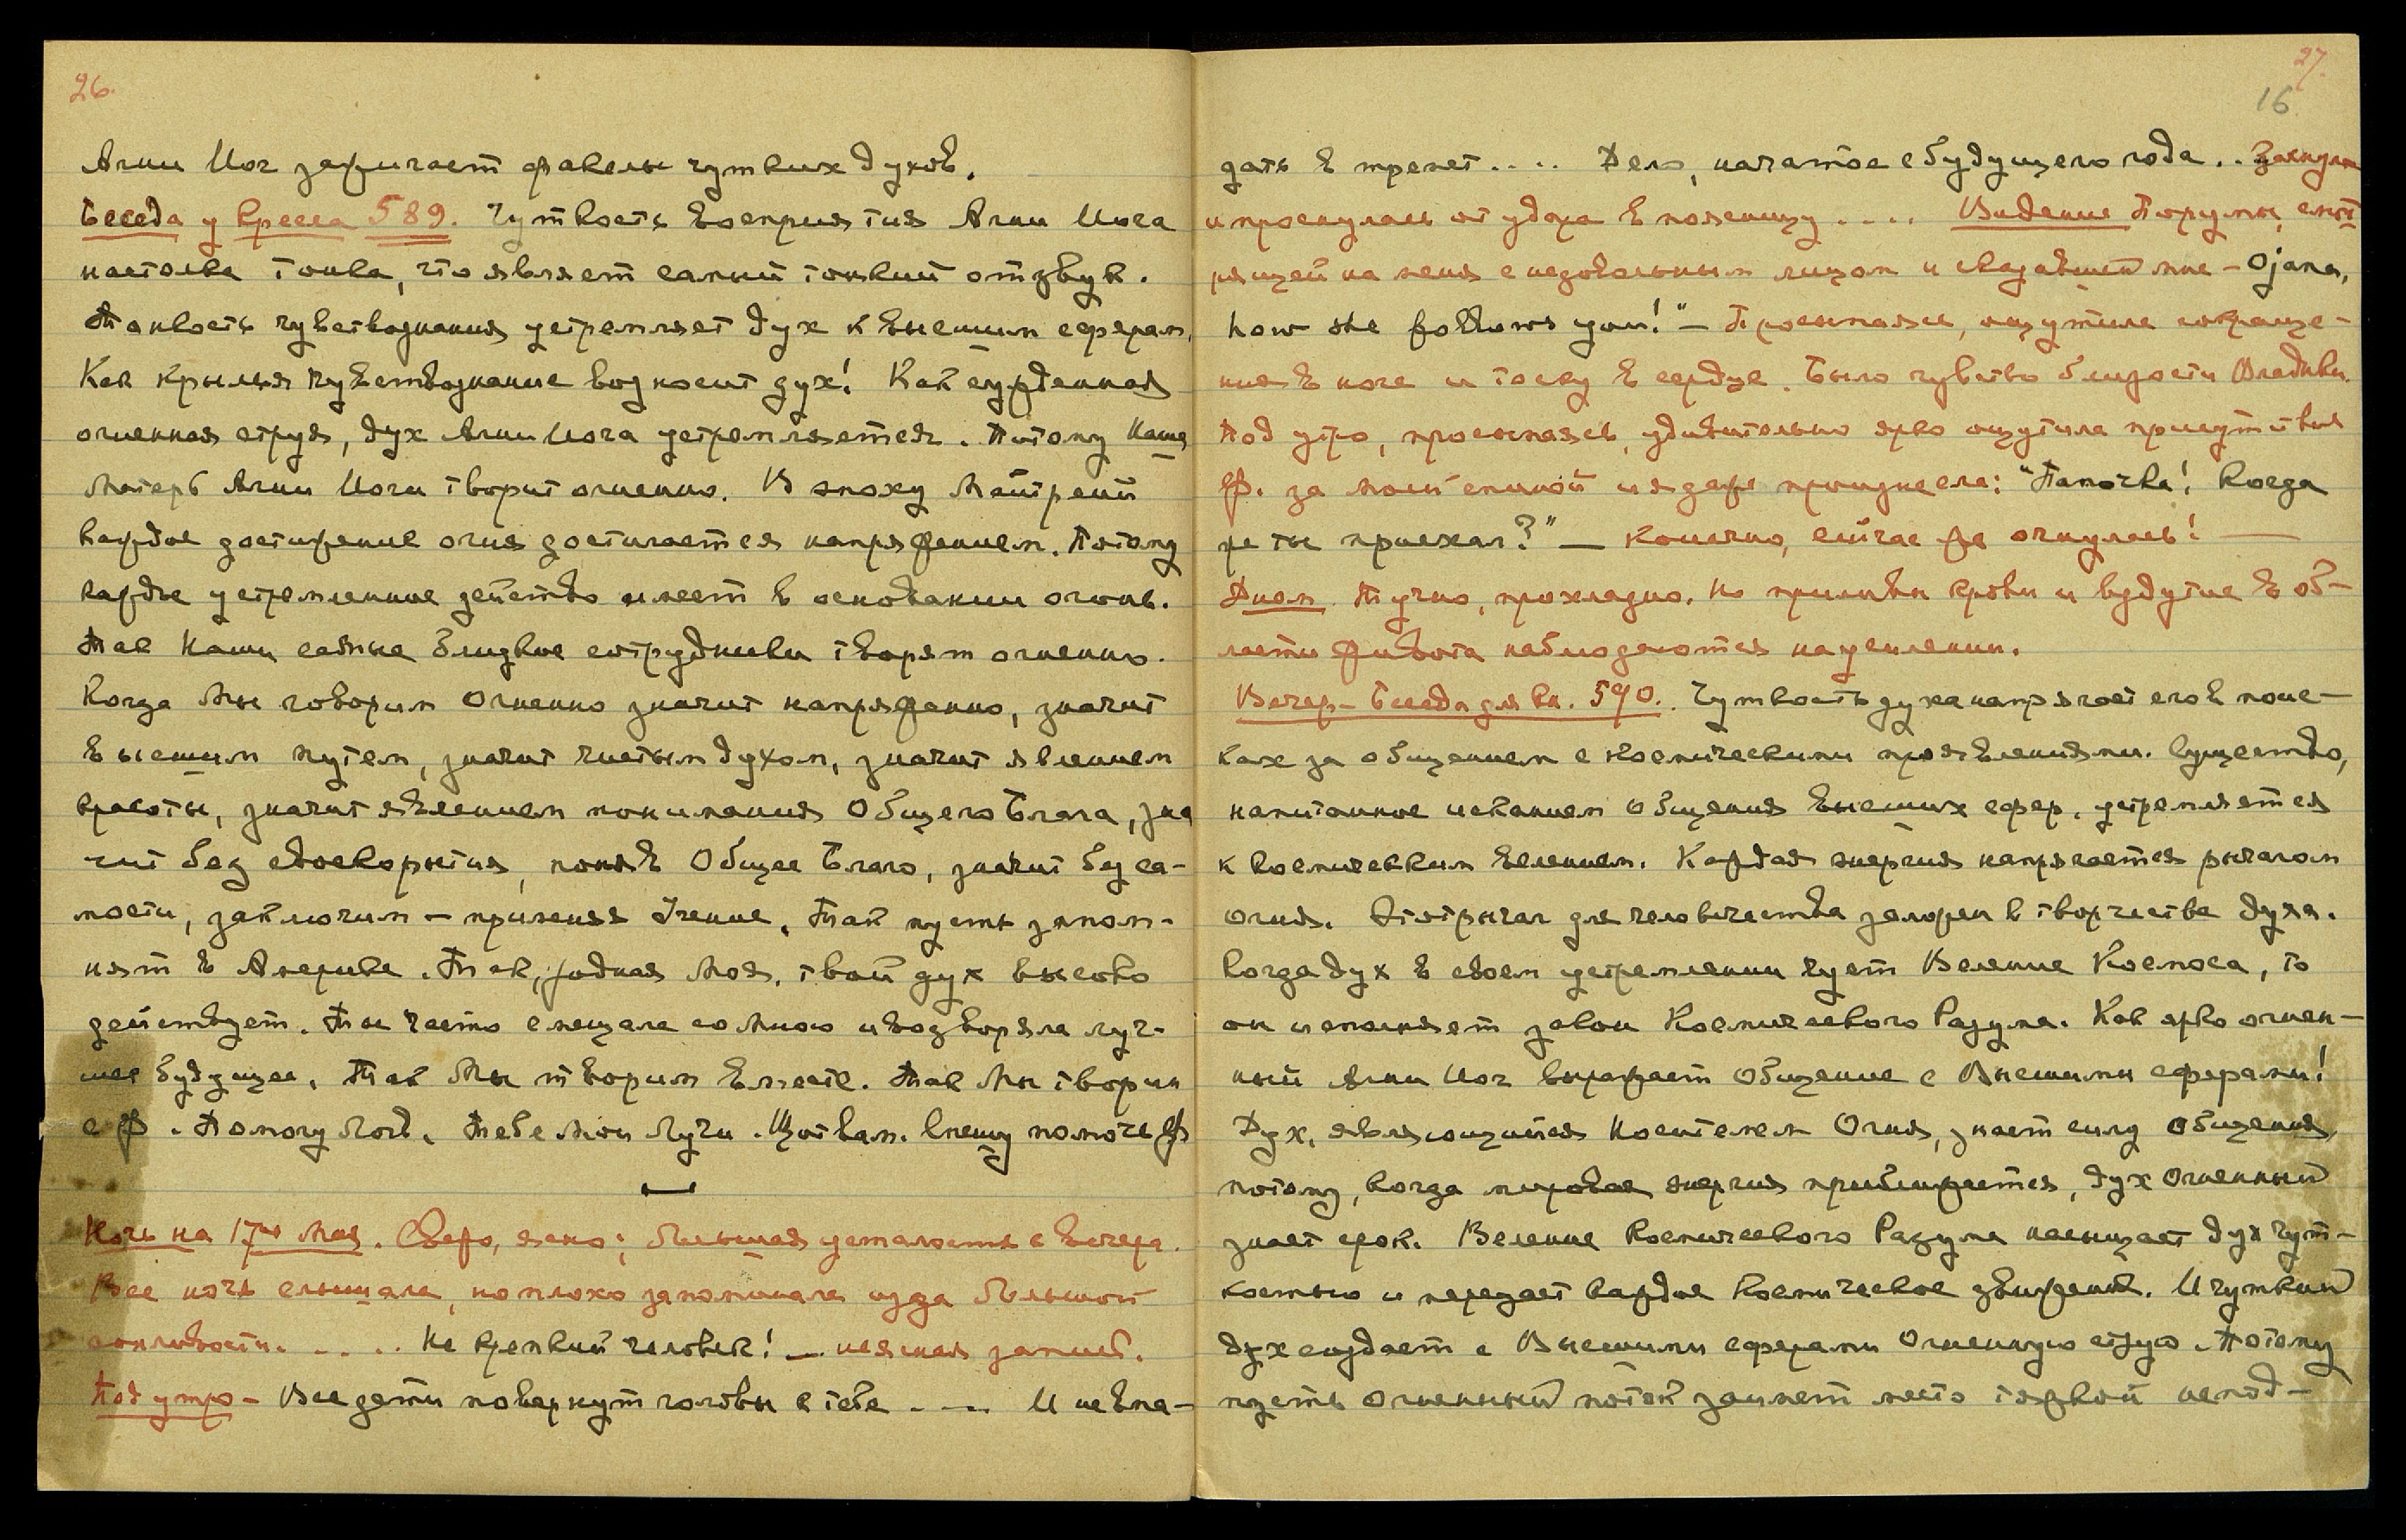 26.
Агни Йог зажигает факелы чутких духов.
Беседа у кресла 589. Чуткость восприятия Агни Йога
настолько тонка, что являет самый тонкий отзвук.
Тонкость чувствознания устремляет дух к высшим сферам.
Как крылья чувствознание возносит дух! Как сужденная
огненная струя, дух Агни Йога устремляется. Потому Наша
Матерь Агни Йоги творит огненно. В эпоху Майтрейи
каждое достижение огня достигается напряжением. Потому
каждое устремленное действо имеет в основании огонь.
Так Наши самые близкие сотрудники творят огненно.
Когда Мы говорим Огненно значит напряженно, значит
высшим путем, значит чистым духом, значит явлением
красоты, значит явлением понимания Общего Блага, зна
чит без своекорыстия, поняв Общее Благо, значит без са-
мости, заключим – применяя Учение. Так пусть запом-
нят в Америке. Так, родная Моя, твой дух высоко
действует. Ты часто смещала со Мною и водворяла луч-
шее будущее. Так Мы творим вместе. Так Мы творим
с Ф. Помогу Лог. Тебе Мои Лучи. Щит вам. Спешу помочь Ф
Ночь на 17ое Мая. Свежо, ясно; большая усталость с вечера.
Всю ночь слышала, но плохо запоминала из за большой
сонливости. .... Не крепкий человек! – неясная запись.
Под утро – Все дети повернут головы к тебе .... И не впа-
27.
16
дать в трепет .... Дело, начатое с будущего года.. Заснула
и проснулась от удара в поясницу .... Видение Порумы, смот
рящей на меня с недовольным лицом и сказавшей мне – Ojana,
how she follows you!" – Просыпаясь, ощутила сокраще-
ния в ноге и тоску в сердце. Было чувство близости Владыки.
Под утро, просыпаясь, удивительно ярко ощутила присутствие
Ф. за моей спиной и я даже произнесла: "Папочка! Когда
же ты приехал?" – Конечно, сейчас же очнулась! –
Днем. Тучно, прохладно. Но приливы крови и вздутие в об-
ласти живота наблюдаются на усилении.
Вечер – Беседа для Кн. 590. Чуткость духа напрягает его в поис-
ках за общением с космическими проявлениями. Существо,
напитанное исканием общения высших сфер, устремляется
к космическим велениям. Каждая энергия напрягается рычагом
огня. Этот рычаг для человечества заложен в творчестве духа.
Когда дух в своем устремлении чует Веление Космоса, то
он исполняет закон Космического Разума. Как ярко огнен-
ный Агни Йог выражает общение с Высшими сферами!
Дух, являющийся Носителем Огня, знает силу общения,
потому, когда мировая энергия приближается, дух Огненный
знает срок. Веление Космического Разума насыщает дух чут-
костью и передает каждое Космическое движение. И чуткий
дух создает с Высшими сферами Огненную струю. Потому
пусть Огненный поток займет место тяжкой непод-